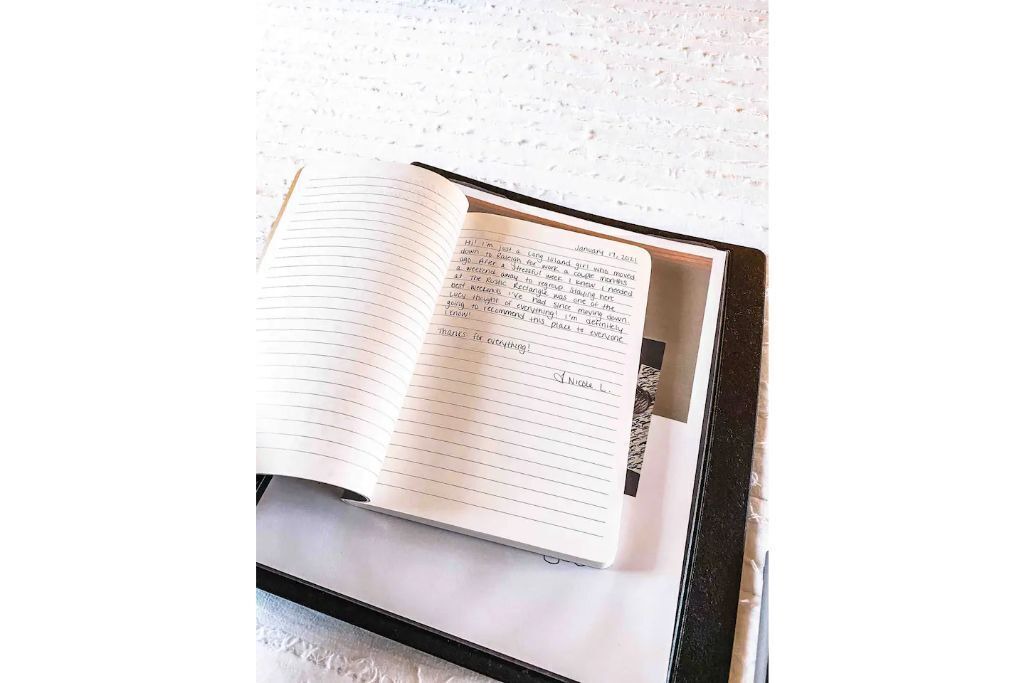 January 17, 2021
Hi! I'm just a Long Island girl who moved
down to Raleigh for work a couple months
ago. After a stressful week I knew I needed
a weekend away to regroup. Staying here
at The Rustic Rectangle was one of the
best weekends I've had since moving down.
Lucy thought of everything! I'm definitely
going to recommend this place to everyone
I know!
Thanks for everything!
♡ Nicole L.